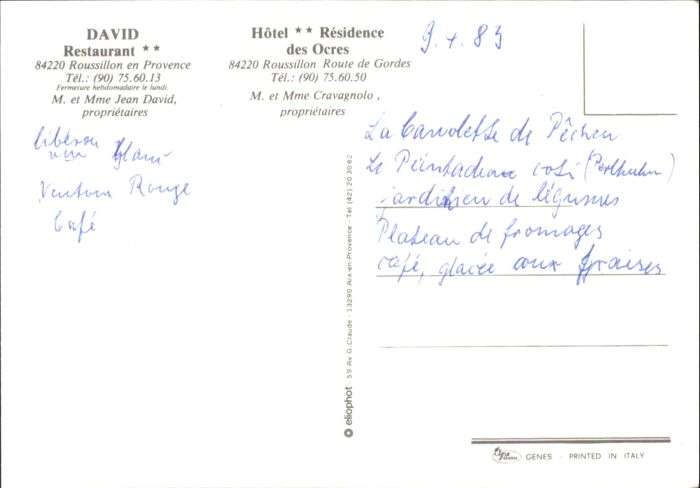 DAVID
Restaurant **
84220 Roussillon en Provence
Tél.: (90) 75.60.13
Fermeture hebdomadaire le lundi.
M. et Mme Jean David,
propriétaires
Hôtel ** Résidence
des Ocres
84220 Roussillon Route de Gordes
Tél.: (90) 75.60.50
M. et Mme Cravagnolo,
propriétaires
vin
Ventoux Rouge
Café
eliophot 59 Av G. Claude - 13290 Aix-en-Provence - Tél (42) 20.30.62
La de Pêcheu
Le Pintadeau roti (Perlhuhn)
jardinien de légumes
Plateau de fromages
café, glacée aux fraises
GENES - PRINTED IN ITALY